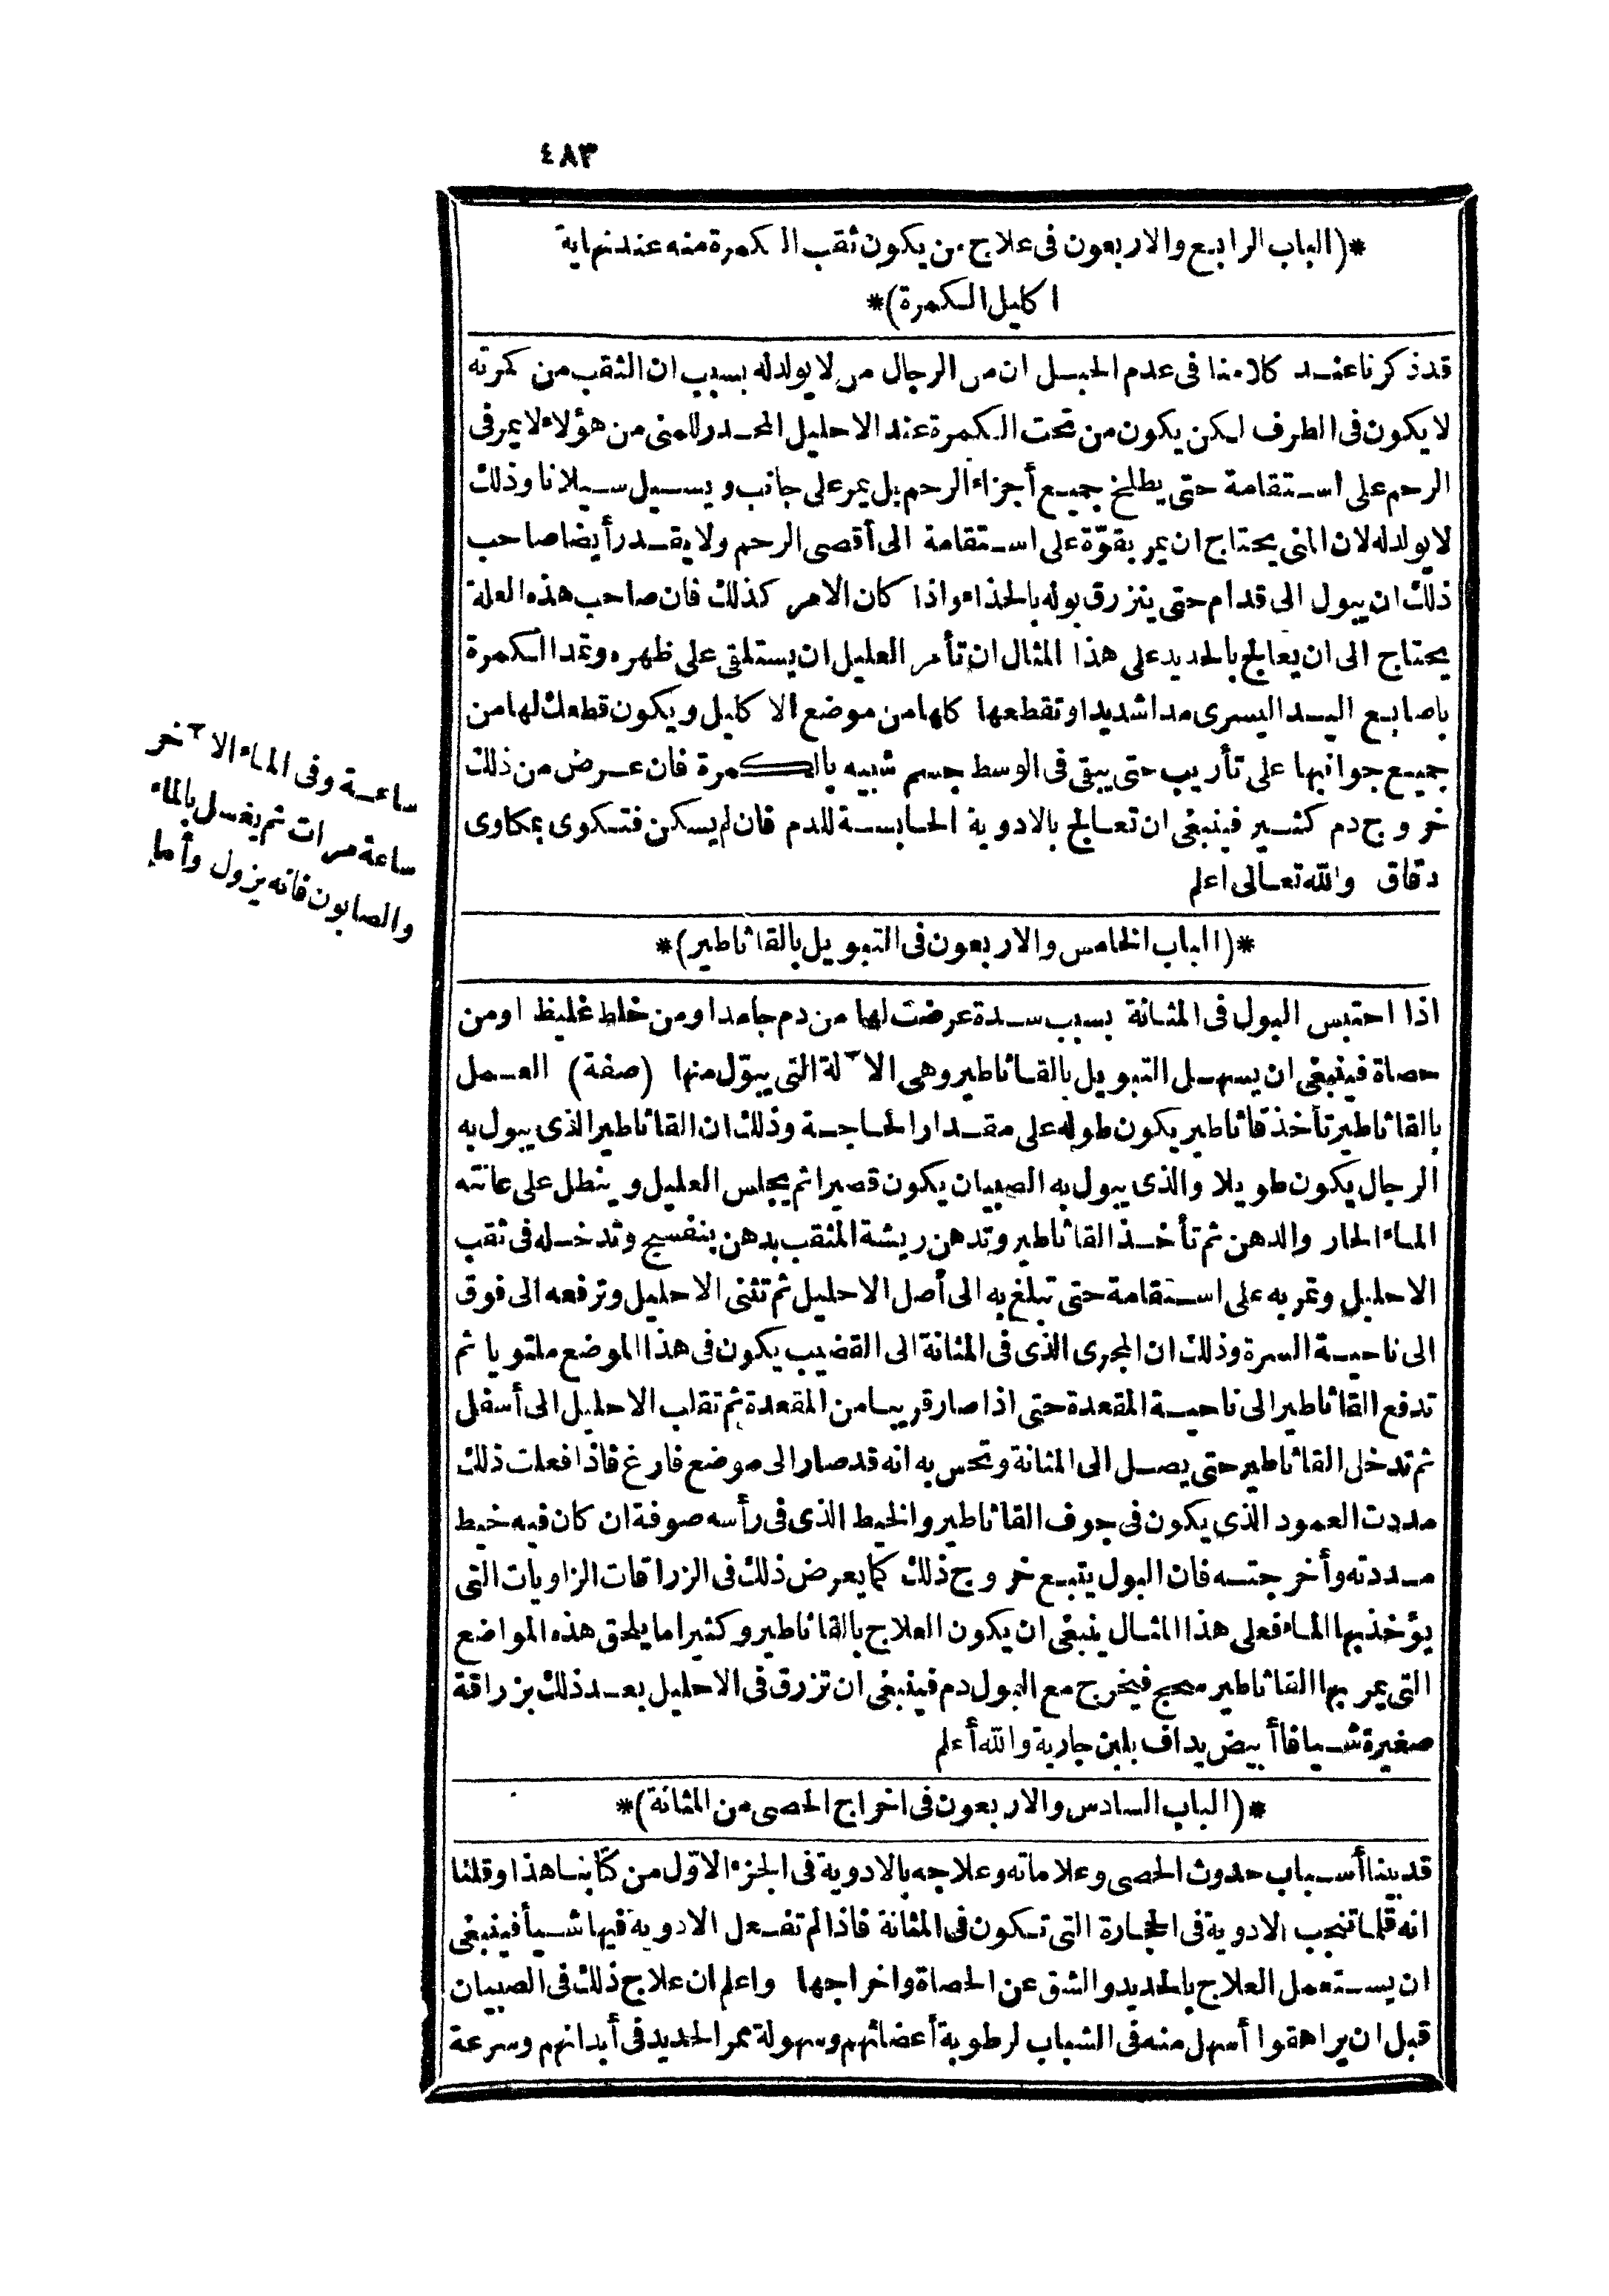 ٤٨٣
*(الباب الرابع والاربعون فى علاج من يكون ثقب الكمرة منه عند نهاية
اكليل الكمرة)*
قد ذكرنا عند كلامنا فى عدم الحبل ان من الرجال من لا يولد له بسبب ان الثقب من كمرته
لا يكون فى الطرف ليكن يكون من تحت الكمرة عند الاحليل المحدر للمنى من هؤلاء لا يمر فى
الرحم على استقامة حتى يطلخ جميع أجزاء الرحم بل يمر على جانب ويسيل سيلانا وذلك
لا يولد له لان المنى يحتاج ان يمر بقوّة على استقامة الى أقصى الرحم ولا يقدر أيضا صاحب
ذلك ان يبول الى قدام حتى ينزرق بوله بالحذاء واذا كان الامر كذلك فان صاحب هذه العلة
يحتاج الى ان يعالج بالحديد على هذا المثال ان تأمر العليل ان يستلقى على ظهره وتمد الكمرة
باصابع اليد اليسرى مدا شديدا وتقطعها كلها من موضع الاكليل ويكون قطعك لها من
جميع جوانبها على تأريب حتى يبقى فى الوسط جسم شبيه بالكمرة فان عرض من ذلك
خروج دم كثير فينبغى ان تعالج بالادوية الحابسة للدم فان لم يسكن فتكوى بمكاوى
دقاق والله تعالى اعلم
ساعة وفى الماء الآخر
ساعة مرات ثم يغسل بالماء
والصابون فانه يزول وأما
*(الباب الخامس والاربعون فى التبويل بالقاثاطير)*
اذا احتبس البول فى المثانة بسبب سدة عرضت لها من دم جامد او من خلط غليظ او من
حصاة فينبغى ان يسهل التبويل بالقاثاطير وهى الآلة التى يبوّل منها (صفة) العمل
بالقاثاطير تأخذ قاثاطير يكون طوله على مقدار الحاجة وذلك ان القاثاطير الذى يبول به
الرجال يكون طويلا والذى يبول به الصبيان يكون قصيرا ثم يجلس العليل وينطل على عانته
الماء الحار والدهن ثم تأخذ القاثاطير وتدهن ريشة المثقب بدهن بنفسج وتدخله فى ثقب
الاحليل وتمر به على استقامة حتى تبلغ به الى أصل الاحليل ثم تثنى الاحليل وترفعه الى فوق
الى ناحية السرة وذلك ان المجرى الذى فى المثانة الى القضيب يكون فى هذا الموضع ملتويا ثم
تدفع القاثاطير الى ناحية المقعدة حتى اذا صار قريبا من المقعدة ثم تقلب الاحليل الى أسفل
ثم تدخل القاثاطير حتى يصل الى المثانة وتحس به انه قد صار الى موضع فارغ فاذا فعلت ذلك
مددت العمود الذى يكون فى جوف القاثاطير والخيط الذى فى رأسه صوفة ان كان فيه خيط
مددته وأخرجته فان البول يتبع خروج ذلك كما يعرض ذلك فى الزراقات الزاويات التى
يؤخذ بها الماء فعلى هذا المثال ينبغى ان يكون العلاج بالقاثاطير وكثيرا ما يلحق هذه المواضع
التى يمر بها القاثاطير سحج فيخرج مع البول دم فينبغى ان تزرق فى الاحليل بعد ذلك بزراقة
صغيرة شيافا أبيض يداف بلبن جارية والله أعلم
*(الباب السادس والاربعون فى اخراج الحصى من المثانة)*
قد بينا أسباب حدوث الحصى وعلاماته وعلاجه بالادوية فى الجزء الاوّل من كتابنا هذا وقلنا
انه قلما تنجب الادوية فى الحجارة التى تكون فى المثانة فاذا لم تفعل الادوية فيها شيأ فينبغى
ان يستعمل العلاج بالحديد والشق عن الحصاة واخراجها واعلم ان علاج ذلك فى الصبيان
قبل ان يراهقوا أسهل منه فى الشباب لرطوبة أعضائهم وسهولة ممر الحديد فى أبدانهم وسرعة